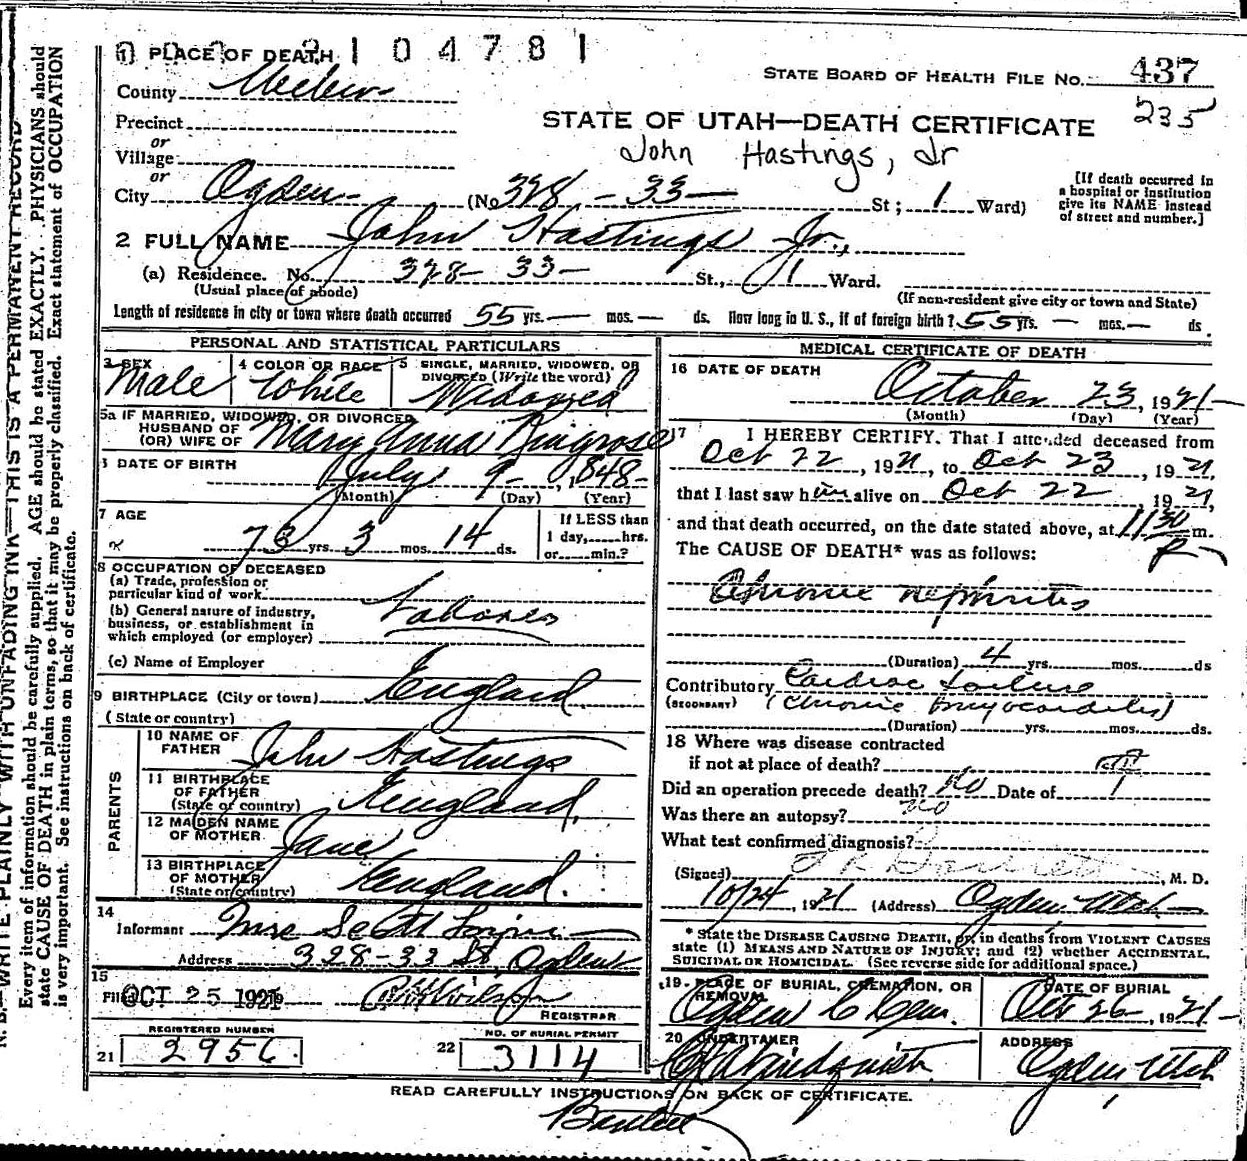 2 1 0 4 7 8 1
1 PLACE OF DEATH
STATE BOARD OF HEALTH FILE NO. 437
County Weber
235
Precinct
STATE OF UTAH—DEATH CERTIFICATE
or
Village
John Hastings, Jr
or
City Ogden (No 328 - 33 - St; 1 Ward)
[If death occurred in
a hospital or institution
give its NAME instead
of street and number.]
2 FULL NAME John Hastings Jr.,
(a) Residence. No. 328- 33- St., 1 Ward.
(Usual place of abode)
(If non-resident give city or town and State)
Length of residence in city or town where death occurred 55 yrs. — mos. — ds. How long in U. S., if of foreign birth? 55 yrs. — mos. — ds.
PERSONAL AND STATISTICAL PARTICULARS
3 SEX
Male
4 COLOR OR RACE
White
5 SINGLE, MARRIED, WIDOWED, OR
DIVORCED (Write the word)
Widowed
5a IF MARRIED, WIDOWED, OR DIVORCED
HUSBAND OF
(OR) WIFE OF Mary Anna Ringrose
DATE OF BIRTH
July 9-, 1848-
(Month) (Day) (Year)
7 AGE
73 yrs. 3 mos. 14 ds.
If LESS than
1 day,......hrs.
or......min.?
8 OCCUPATION OF DECEASED
(a) Trade, profession or
particular kind of work
Laborer
(b) General nature of industry,
business, or establishment in
which employed (or employer)
(c) Name of Employer
9 BIRTHPLACE (City or town) England
(State or country)
PARENTS
10 NAME OF
FATHER John Hastings
11 BIRTHPLACE
OF FATHER
(State or country) England.
12 MAIDEN NAME
OF MOTHER Jane
13 BIRTHPLACE
OF MOTHER
(State or country) England.
14
Informant Mrs Scott
Address 328-33 St, Ogden
15
Filed OCT 25 1921 Wilson
REGISTRAR
REGISTERED NUMBER
21 2956.
NO. OF BURIAL PERMIT
22 3114
MEDICAL CERTIFICATE OF DEATH
16 DATE OF DEATH
October 23, 1921-
(Month) (Day) (Year)
17 I HEREBY CERTIFY. That I attended deceased from
Oct 22, 1921, to Oct 23, 1921,
that I last saw him alive on Oct 22 1921,
and that death occurred, on the date stated above, at 11 30 m.
P
The CAUSE OF DEATH* was as follows:
Chronic nephritis
(Duration) 4 yrs. mos. ds
Contributory Cardiac failure
(SECONDARY) (Chronic myocarditis)
(Duration) yrs. mos. ds.
18 Where was disease contracted
if not at place of death?
Did an operation precede death? No Date of
Was there an autopsy? No
What test confirmed diagnosis?
(Signed) , M. D.
10/24, 1921 (Address) Ogden, Utah
* State the DISEASE CAUSING DEATH, or, in deaths from VIOLENT CAUSES
state (1) MEANS AND NATURE OF INJURY; and (2) whether ACCIDENTAL,
SUICIDAL OR HOMICIDAL. (See reverse side for additional space.)
19 PLACE OF BURIAL, CREMATION, OR
REMOVAL
Ogden C Cem.
DATE OF BURIAL
Oct 26, 1921-
20 UNDERTAKER
ADDRESS
Ogden, Utah
READ CAREFULLY INSTRUCTIONS ON BACK OF CERTIFICATE.
N. B.—WRITE PLAINLY WITH UNFADING INK—THIS IS A PERMANENT RECORD
Every item of information should be carefully supplied. AGE should be stated EXACTLY. PHYSICIANS should
state CAUSE OF DEATH in plain terms, so that it may be properly classified. Exact statement of OCCUPATION
is very important. See instructions on back of certificate.